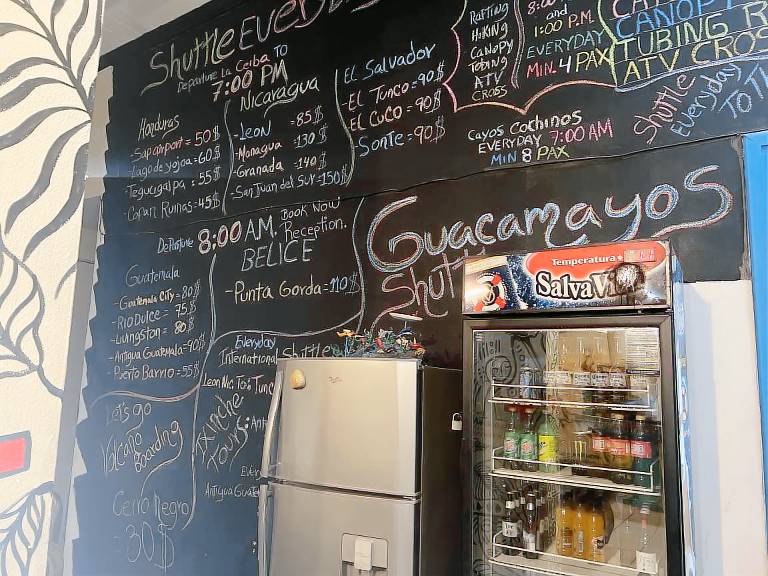 Shuttle Everyday
Departure La Ceiba To
7:00 PM
Honduras
- Sap airport = 50$
- Lago de yojoa = 60$
- Tegucigalpa = 55$
- Copan Ruinas = 45$
Nicaragua
- Leon = 85$
- Managua = 130$
- Granada = 140$
- San Juan del Sur = 150$
El Salvador
- El Tunco = 90$
- El Cuco = 90$
Sonte = 90$
Rafting
Hiking
Canopy
Tobing
ATV
Cross
and
1:00 P.M.
EVERYDAY
Min. 4 PAX
CANOPY
TUBING
ATV CROSS
Cayos Cochinos
EVERYDAY 7:00 AM
MIN 8 PAX
Shuttle
Everyday
To
Departure 8:00 AM. Book Now
Reception.
Guatemala
- Guatemala City = 80$
- Rio Dulce = 75$
- Livingston = 80$
- Antigua Guatemala = 90$
- Puerto Barrio = 55$
BELICE
- Punta Gorda = 110$
Guacamayos
Everyday
International Shuttle
Leon Nic To: Tunc
Ixinche
Tours:
Antigua
Let's go
Volcano
Boarding
Cerro Negro
= 30$
Temperatura
SalvaVi